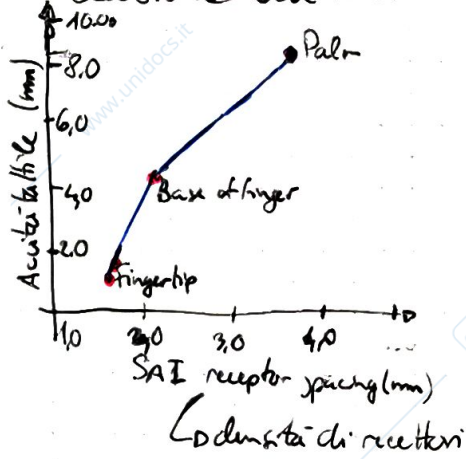 10.00
8,0
6,0
4,0
2.0
Acuità tattile (mm)
Palm
Base of finger
Fingertip
1,0 2,0 3,0 4,0 ...
SAI receptor spacing (mm)
densità di recettori
www.unidocs.it